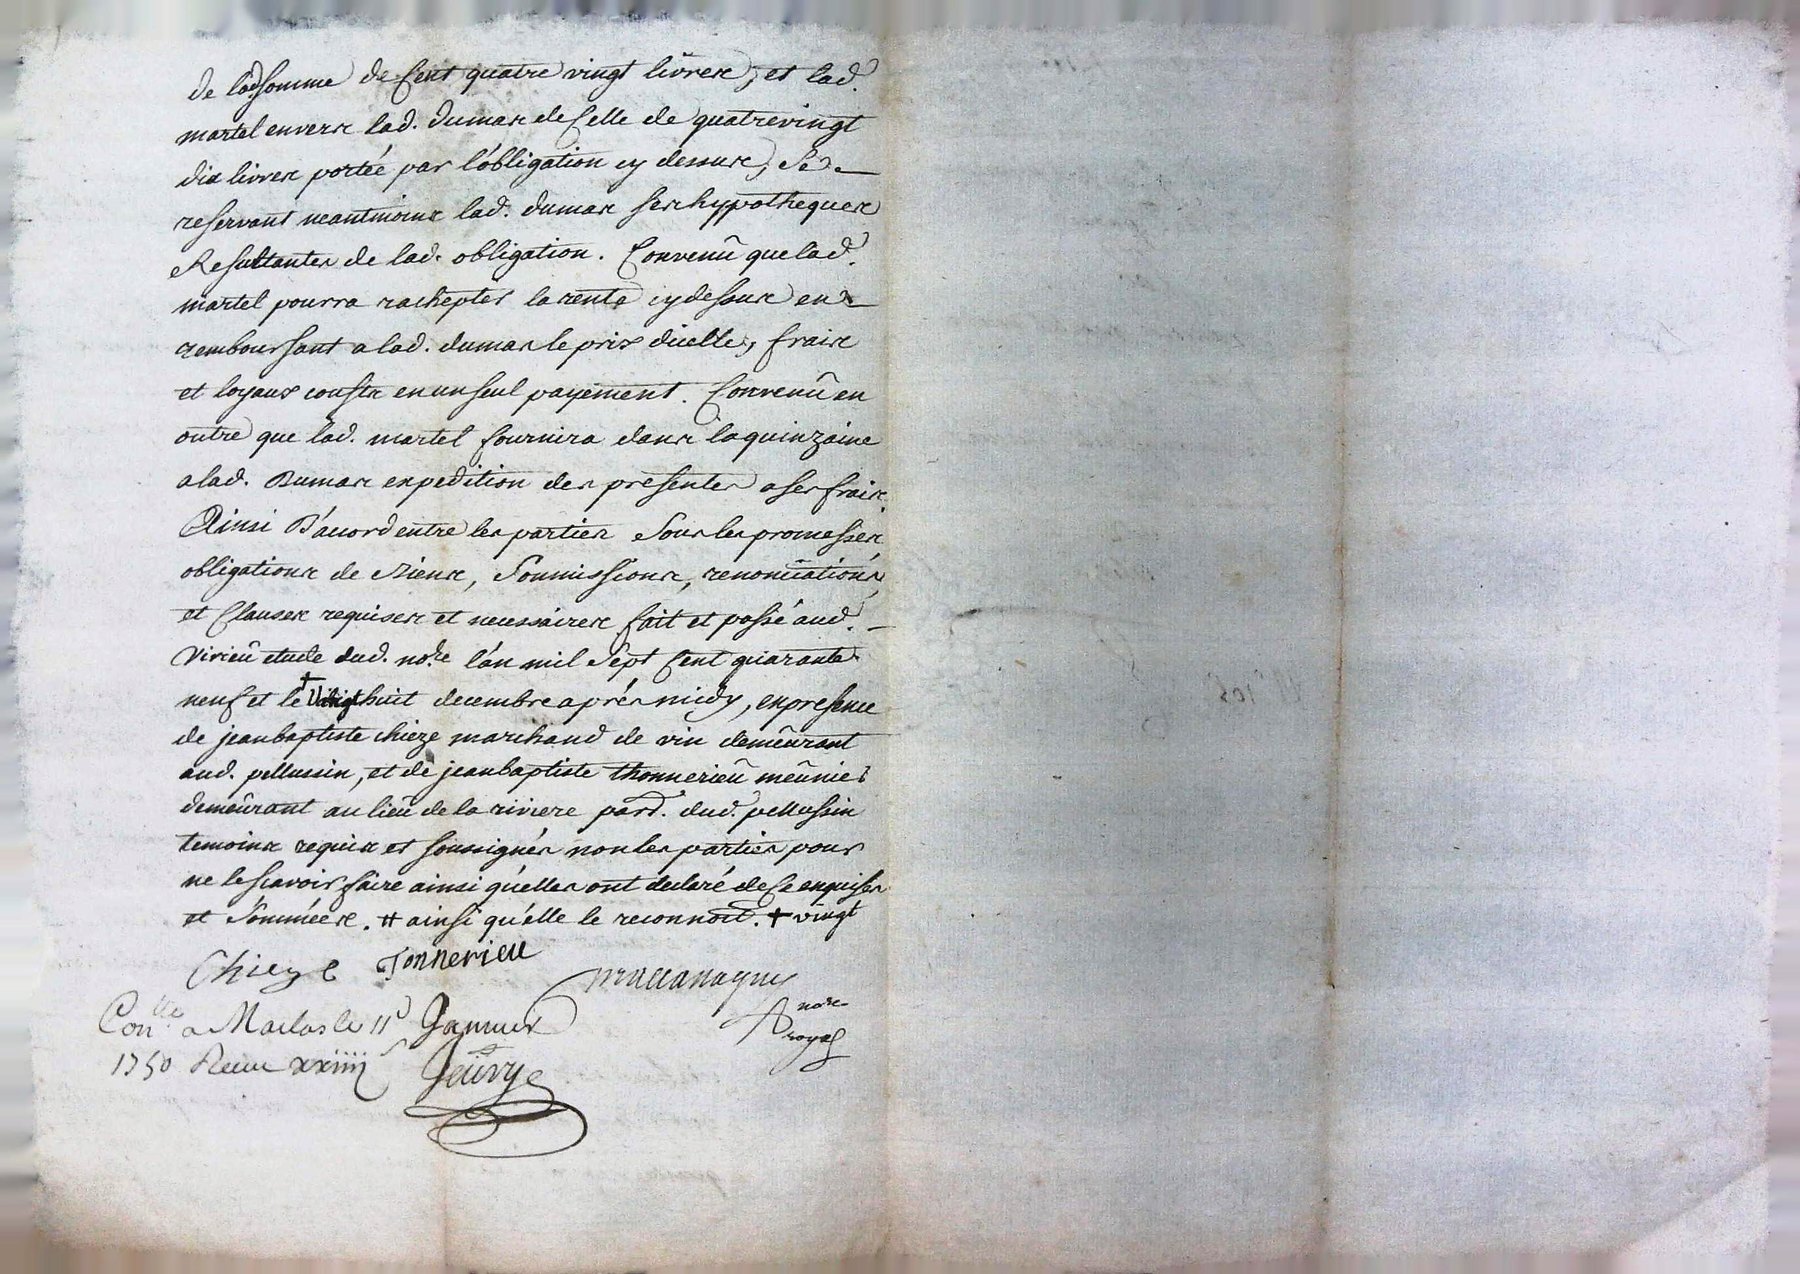 de lad. somme de Cent quatre vingt livres, et lad.
martel envers lad. dumas de Celle de quatrevingt
dix livres portée par l'obligation cy dessus, Se
reservant neantmoins lad. dumas ses hypotheques
Resultantes de lad. obligation. Convenû que lad.
martel pourra rachepter la rente cy dessus en
remboursant a lad. dumas le prix d'icelle, frais
et loyaux cousts en un seul payement. Convenû en
outre que lad. martel fournira dans la quinzaine
a lad. Dumas expedition des presentes a ses frais.
Ainsi D'acord entre les parties Sous les promesses
obligations de Biens, Soumissions, renonciations,
et Clauses requises et necessaires fait et passé aud.
Virieû etude dud. nore. l'an mil Sept Cent quarante
neuf et le + huit decembre aprés midy, en presence
de jean baptiste chieze marchand de vin demeûrant
aud. pellussin, et de jean baptiste thonnerieû meûnier
demeûrant au lieû de la riviere parr. dud. pellussin
temoins requis et soussignés non les parties pour
ne le scavoir faire ainsi qu'elles ont declaré de Ce enquises
et Sommées. # ainsi qu'elle le reconnoit. + vingt
Chieze Tonnerieu
nore
royal
Conlle. a Maclas le 11e Janvier
1750 Recu xxiiii s